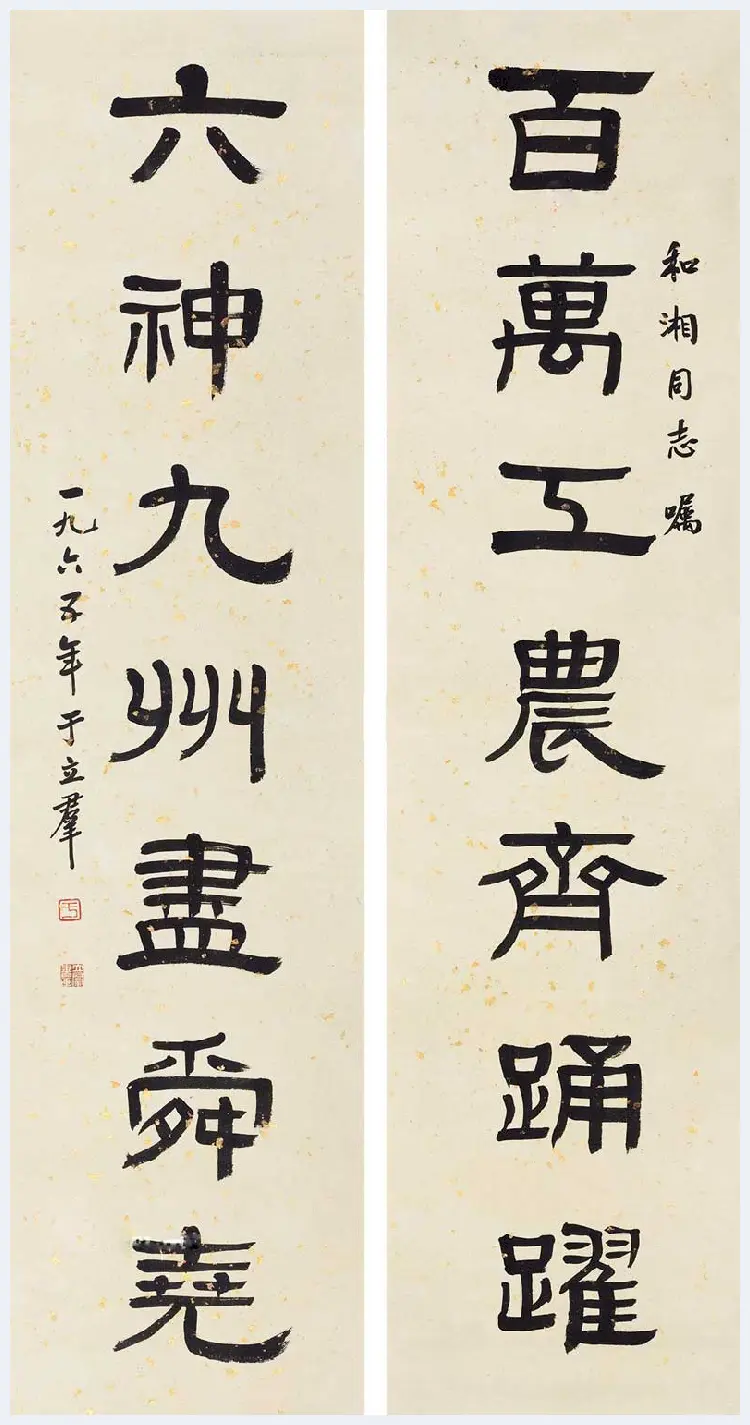 和湘同志嘱
百萬工農齊踊躍
六神九州盡舜堯
一九六五年于立羣